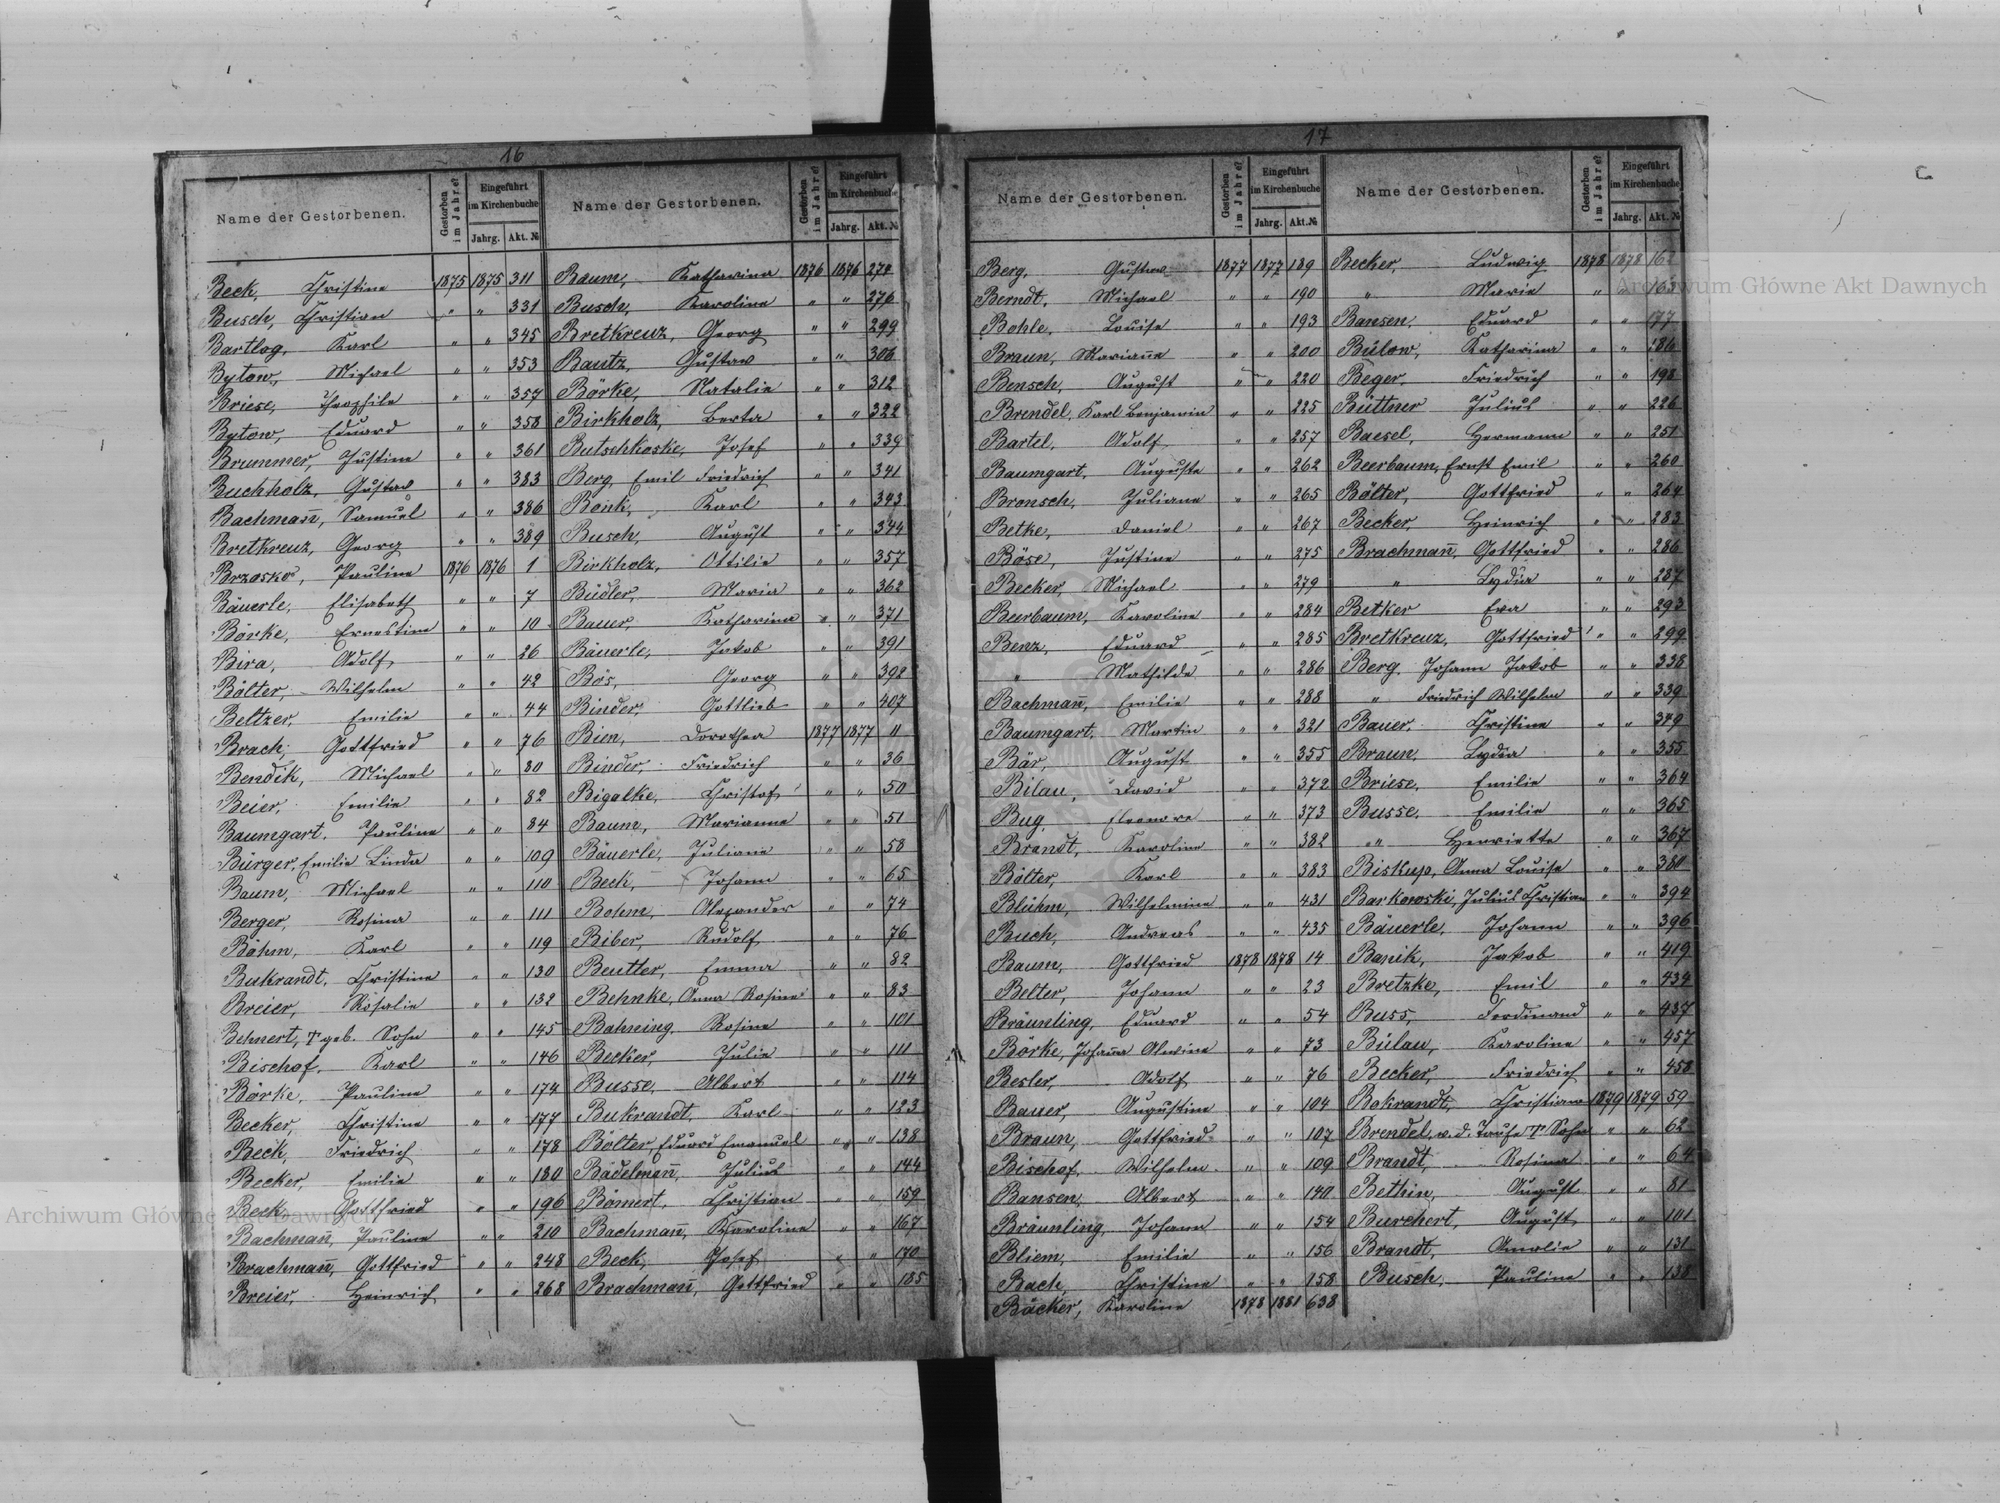 16
Name der Gestorbenen. Gestorben im Jahre? Eingeführt im Kirchenbuche Jahrg. Akt. №
Beck, Christine 1875 1875 311
Busch, Christian " " 331
Bartlog, Karl " " 345
Bytow, Michael " " 353
Briese, Theophile " " 357
Bytow, Eduard " " 358
Brummer, Justine " " 361
Buchholz, Gustav " " 383
Bachmañ, Samuel " " 386
Bretkreuz, Georg " " 389
Brzosko, Pauline 1876 1876 1
Bäuerle, Elisabeth " " 7
Börke, Ernestine " " 10
Bira, Adolf " " 26
Bölter, Wilhelm " " 42
Beltzer, Emilie " " 44
Brach, Gottfried " " 76
Bendik, Michael " " 80
Beier, Emilie " " 82
Baumgart, Pauline " " 84
Bürger, Emilie Linda " " 109
Baum, Michael " " 110
Berger, Rosina " " 111
Böhm, Karl " " 119
Bukrandt, Christine " " 130
Breier, Rosalie " " 132
Behnert, geb. Sohn " " 145
Bischof, Karl " " 146
Börke, Pauline " " 174
Becker, Christine " " 177
Beck, Friedrich " " 178
Becker, Emilie " " 180
Beck, Gottfried " " 196
Bachmañ, Pauline " " 210
Brachmañ, Gottfried " " 248
Breier, Heinrich " " 268
Name der Gestorbenen. Gestorben im Jahre? Eingeführt im Kirchenbuche Jahrg. Akt. №
Baum, Katharina 1876 1876 274
Busch, Karoline " " 276
Bretkreuz, Georg " " 299
Bautz, Gustav " " 306
Börke, Natalie " " 312
Birkholz, Berta " " 322
Butschkoske, Josef " " 339
Berg, Emil Friedrich " " 341
Bonk, Karl " " 343
Busch, August " " 344
Birkholz, Ottilie " " 357
Büdler, Maria " " 362
Bauer, Katharina " " 371
Bäuerle, Jakob " " 391
Bös, Georg " " 392
Binder, Gottlieb " " 407
Bien, Dorothea 1877 1877 11
Binder, Friedrich " " 36
Bigalke, Christof " " 50
Baum, Marianne " " 51
Bäuerle, Juliane " " 58
Beck, Johann " " 65
Bohm, Alexander " " 74
Biber, Rudolf " " 76
Beutter, Emma " " 82
Behnke, Anna Rosine " " 83
Bahning, Rosine " " 101
Becker, Julie " " 111
Busse, Albert " " 114
Bukrandt, Karl " " 123
Bölter, Eduard Emanuel " " 138
Bädelmañ, Julius " " 144
Bömert, Christian " " 159
Bachmañ, Karoline " " 167
Beck, Josef " " 170
Brachmañ, Gottfried " " 185
17
Name der Gestorbenen. Gestorben im Jahre? Eingeführt im Kirchenbuche Jahrg. Akt. №
Berg, Gustav 1877 1877 189
Berndt, Michael " " 190
Bohle, Louise " " 193
Braun, Mariañe " " 200
Bensch, August " " 220
Brendel, Karl Benjamin " " 225
Bartel, Adolf " " 257
Baumgart, Auguste " " 262
Bronsch, Juliane " " 265
Betke, Daniel " " 267
Böse, Justine " " 275
Becker, Michael " " 279
Beerbaum, Karoline " " 284
Benz, Eduard " " 285
" Mathilde " " 286
Bachmañ, Emilie " " 288
Baumgart, Martin " " 321
Bär, August " " 355
Bilau, David " " 372
Bug, Eleonore " " 373
Brandt, Karoline " " 382
Bölter, Karl " " 383
Blühm, Wilhelmine " " 431
Buch, Andreas " " 435
Baum, Gottfried 1878 1878 14
Belter, Johann " " 23
Bräunling, Eduard " " 54
Börke, Johaña Alwine " " 73
Besler, Adolf " " 76
Bauer, Augustine " " 104
Braun, Gottfried " " 107
Bischof, Wilhelm " " 109
Bansen, Albert " " 140
Bräunling, Johann " " 154
Bliem, Emilie " " 156
Bach, Christine " " 158
Bäcker, Karoline 1878 1881 638
Name der Gestorbenen. Gestorben im Jahre? Eingeführt im Kirchenbuche Jahrg. Akt. №
Becker, Ludwig 1878 1878 162
" Marie " " 163
Bansen, Eduard " " 177
Bülow, Katharina " " 186
Beger, Friedrich " " 198
Büttner Julius " " 226
Baesel, Hermann " " 251
Beerbaum, Ernst Emil " " 260
Bölter, Gottfried " " 264
Becker Heinrich " " 283
Brachmañ, Gottfried " " 286
" Lydia " " 287
Betker Eva " " 293
Bretkreuz, Gottfried " " 299
Berg, Johann Jakob " " 338
" Friedrich Wilhelm " " 339
Bauer, Christine " " 349
Braun, Lydia " " 355
Briese, Emilie " " 364
Busse, Emilie " " 365
" Henriette " " 367
Biskup, Anna Louise " " 380
Barkowski, Julius Christian " " 394
Bäuerle, Johann " " 396
Banik, Jakob " " 419
Bretzke, Emil " " 434
Buss, Ferdinand " " 437
Bülau, Karoline " " 457
Becker, Friedrich " " 458
Bokrandt, Christian 1879 1879 59
Brendel, v. d. Taufe Sohn " " 62
Brandt, Rosina " " 64
Bethin, August " " 81
Burchert, August " " 101
Brandt, Amalie " " 131
Busch, Pauline " " 138
Archiwum Główne Akt Dawnych
Archiwum Główne Akt Dawnych